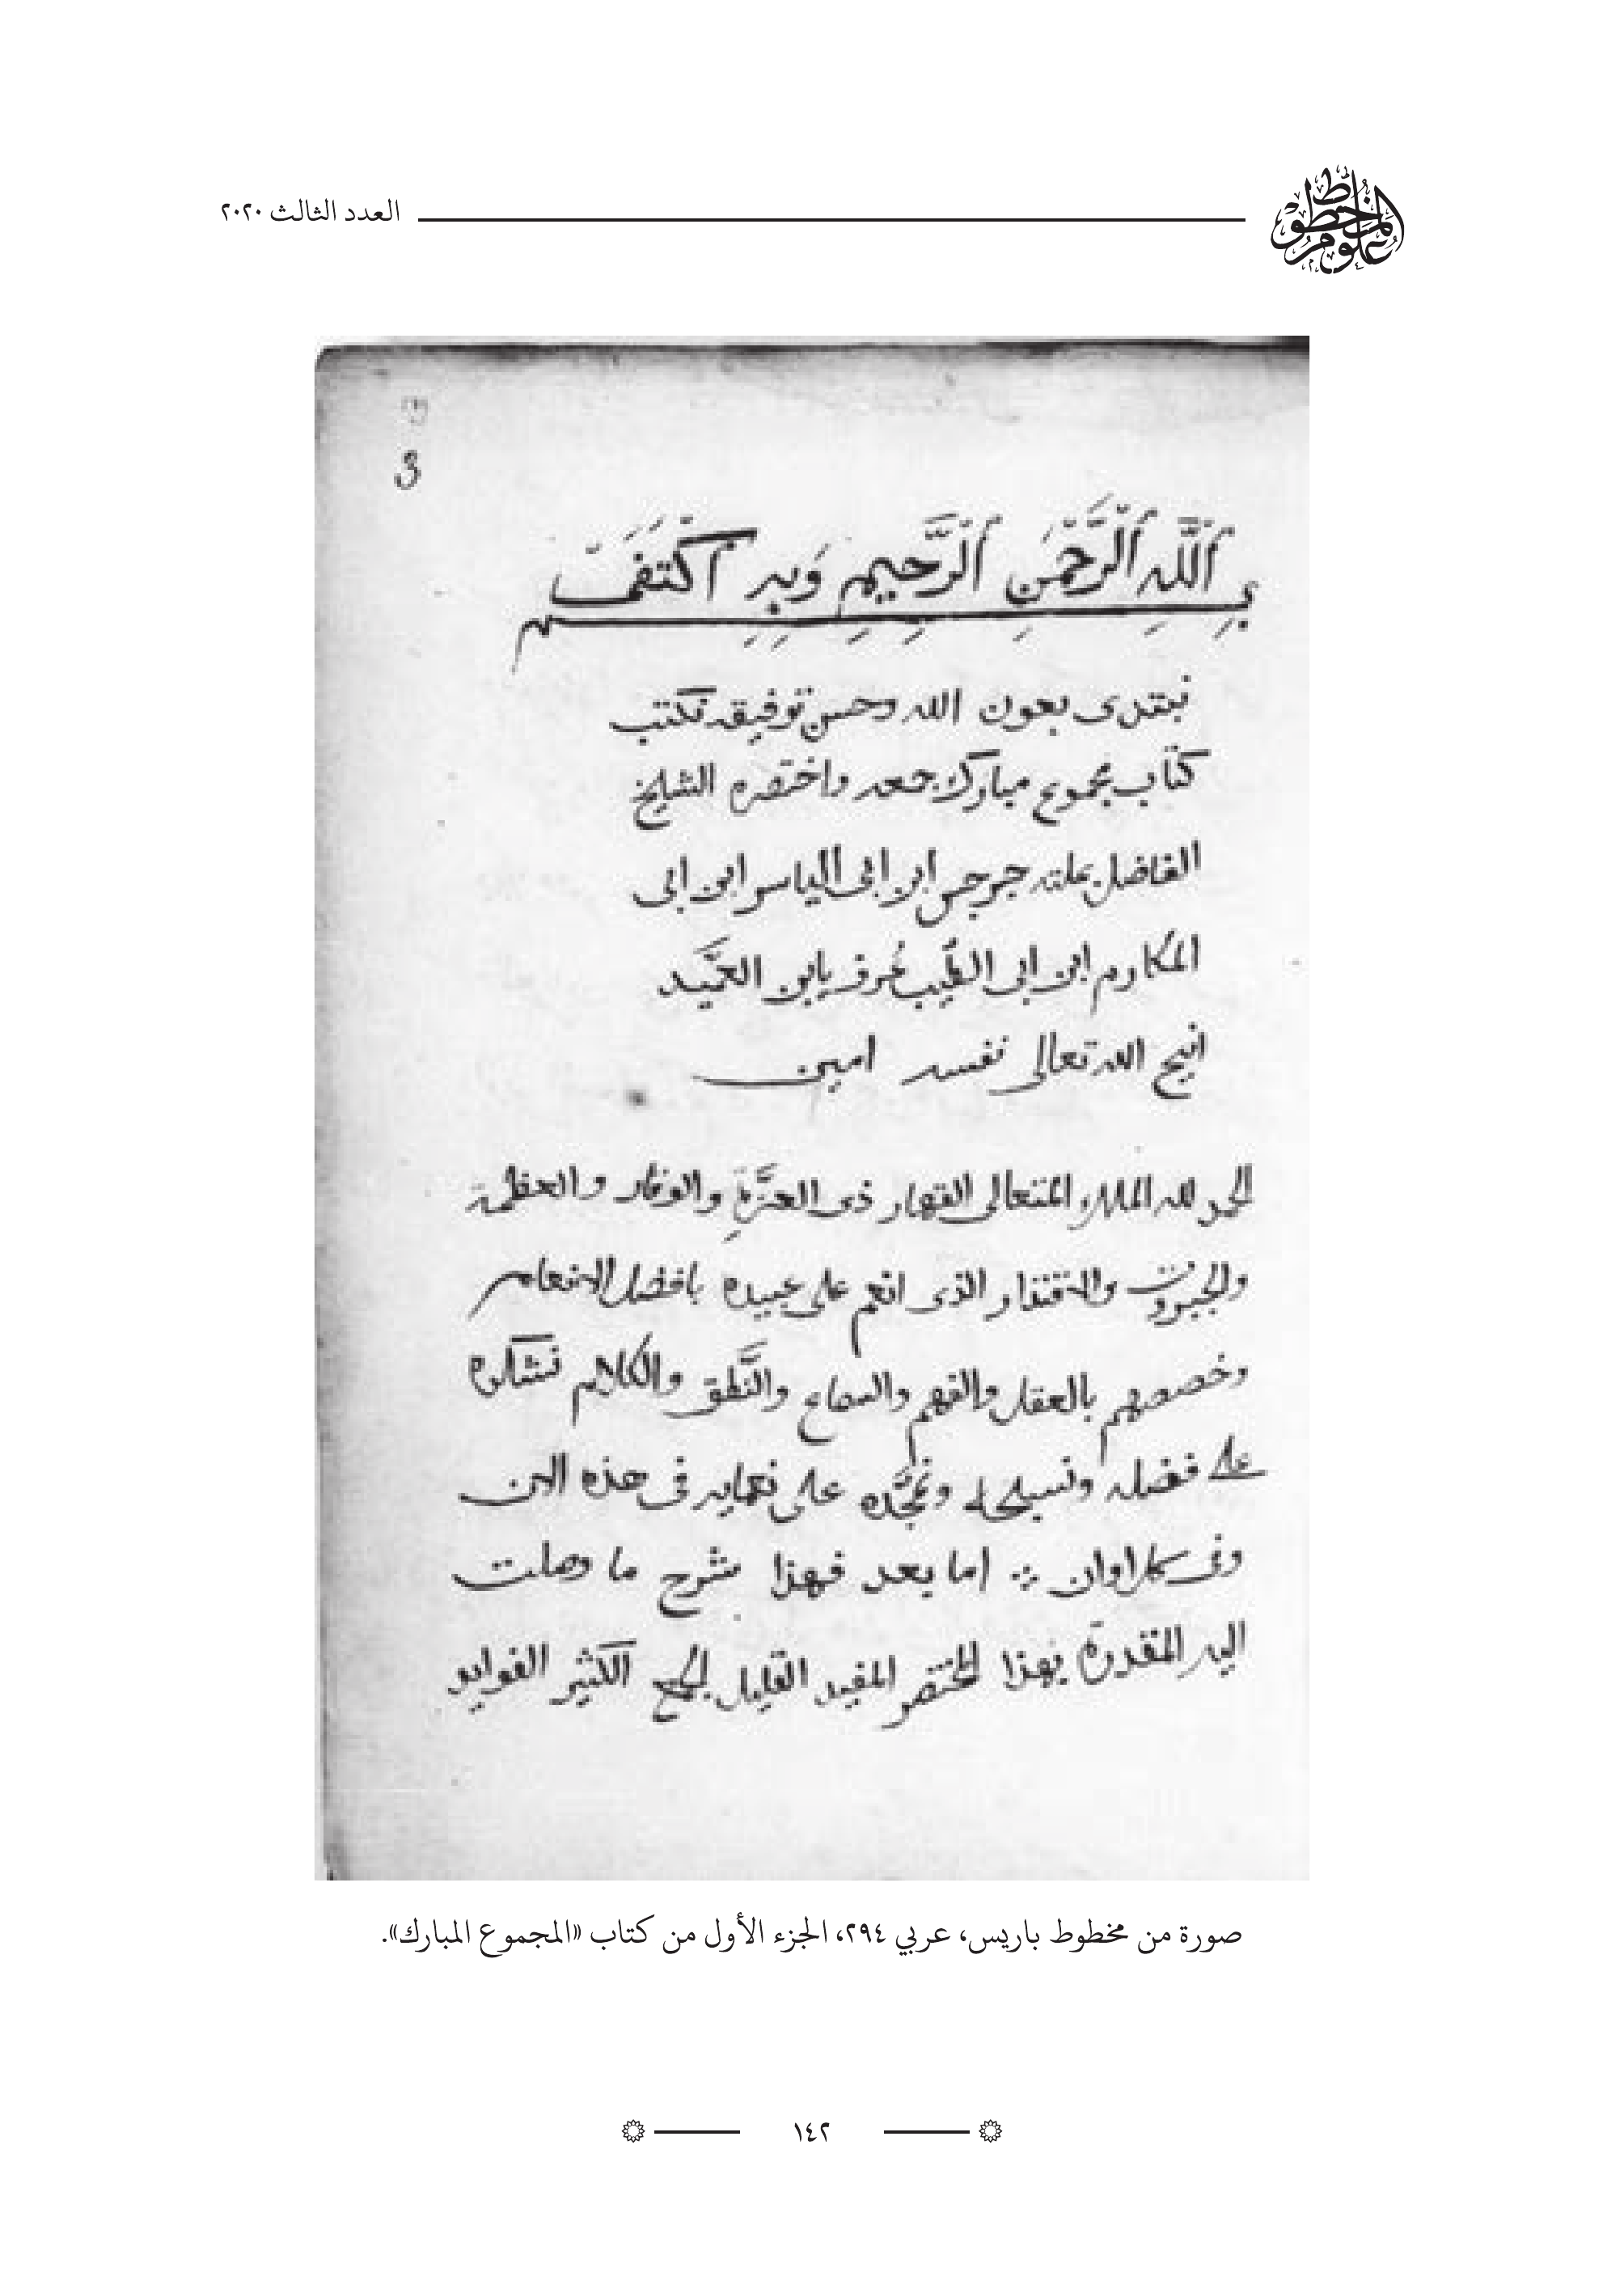 علوم المخطوط
العدد الثالث ٢٠٢٠
بسم ٱللَّهِ ٱلرَّحْمَنِ ٱلرَّحِيمِ وَبِهِ أكْتَفَى
نبتدى بعون الله وحسن توفيقه نكتب
كتاب مجموع مبارك جمعه واختصره الشيخ
الفاضل بملته جرجس ابن ابى الياسر ابن ابى
المكارم ابن ابى الطيب عُرف بابن العَّميد
انيح الله تعالى نفسه امين
الحمد لله الملك المتعالى القهار ذى العزَّةِ والوقار والعظمة
والجبروت والاقتدار الذى انعم على عبيده بافضل الانعام
وخصصهم بالعقل والفهم والسماع والنَّطق والكلام نشكره
على فضله ونسبحه ونمجَّده على نعمايه فى هذه الان
وفى كل اوان ∴ اما بعد فهذا شرح ما وصلت
اليه المقدرة بهذا المختصر المفيد القليل الجمع الكثير الفوايد
صورة من مخطوط باريس، عربي ٢٩٤، الجزء الأول من كتاب «المجموع المبارك».
١٤٢